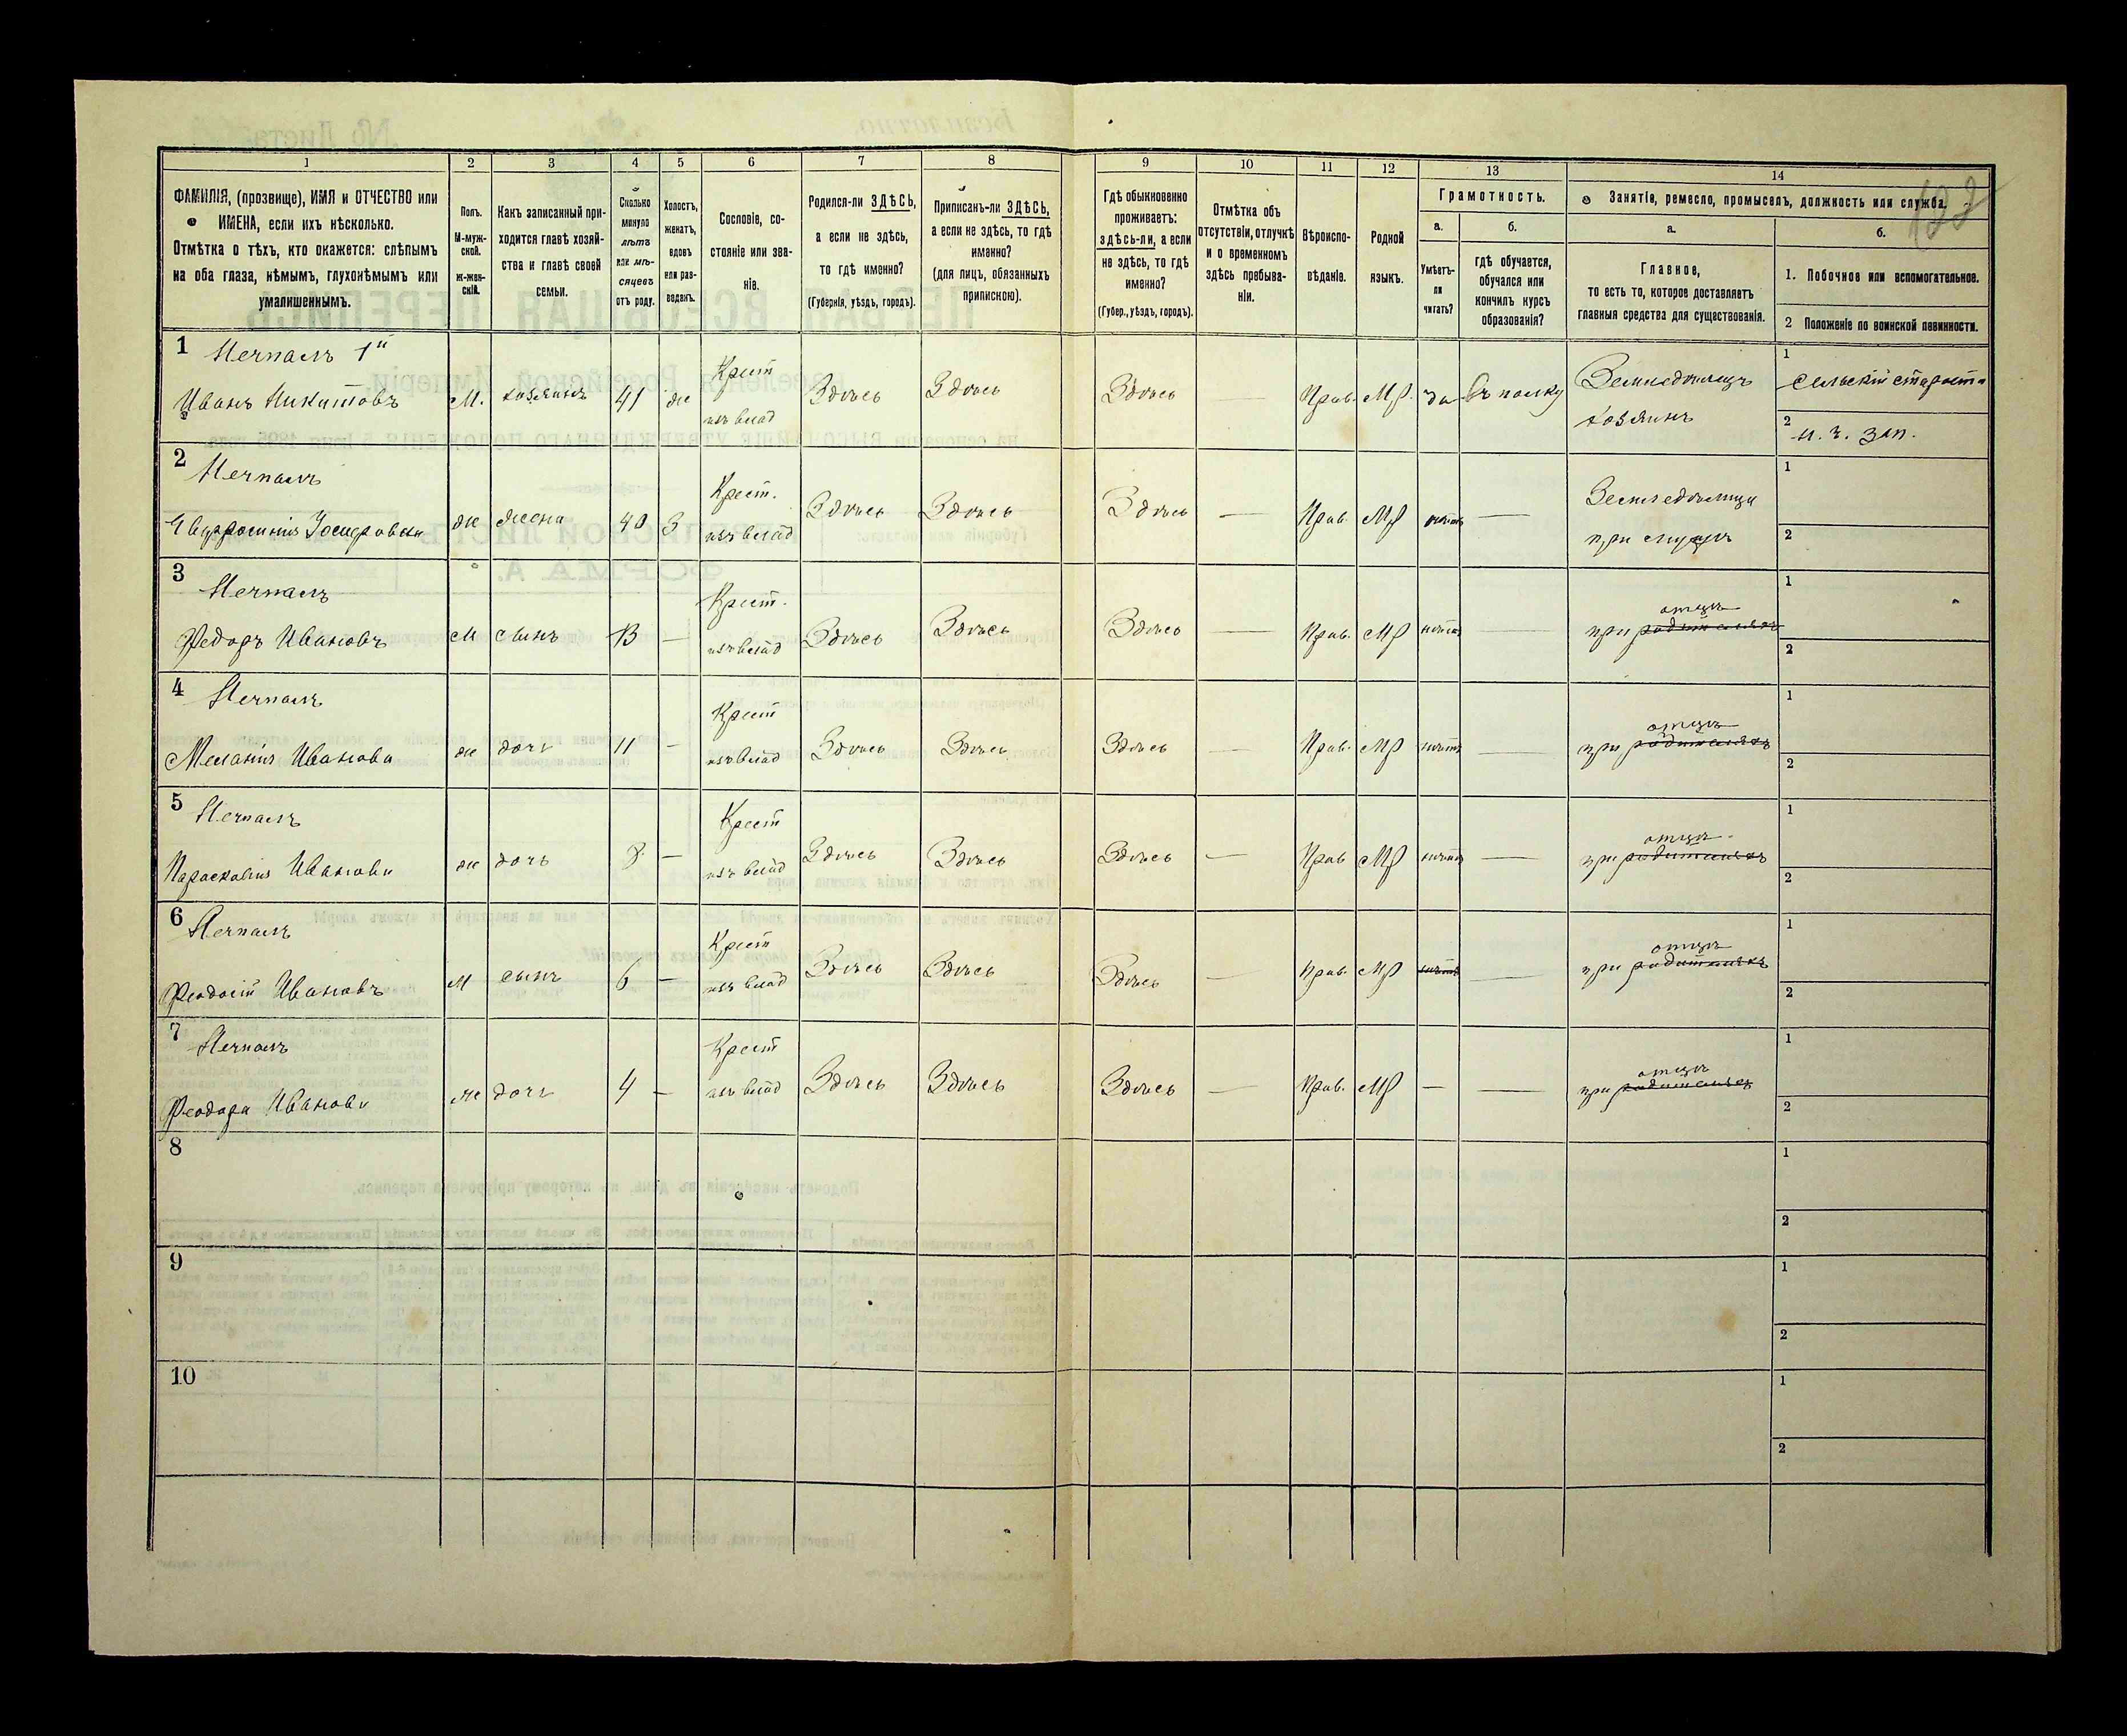 1 2 3 4 5 6 7 8 9 10 11 12 13 14
ФАМИЛІЯ, (прозвище), ИМЯ и ОТЧЕСТВО или
ИМЕНА, если ихъ нѣсколько.
Отмѣтка о тѣхъ, кто окажется: слѣпымъ
на оба глаза, нѣмымъ, глухонѣмымъ или
умалишеннымъ.
Полъ.
М-муж-
ской.
Ж-жен-
скій.
Какъ записанный при-
ходится главѣ хозяй-
ства и главѣ своей
семьи.
Сколько
минуло
лѣтъ
или мѣ-
сяцевъ
отъ роду.
Холостъ,
женатъ,
вдовъ
или раз-
веденъ.
Сословіе, со-
стояніе или зва-
ніе.
Родился-ли ЗДѢСЬ,
а если не здѣсь,
то гдѣ именно?
(Губернія, уѣздъ, городъ).
Приписанъ-ли ЗДѢСЬ,
а если не здѣсь, то гдѣ
именно?
(для лицъ, обязанныхъ
припискою).
Гдѣ обыкновенно
проживаетъ:
здѣсь-ли, а если
не здѣсь, то гдѣ
именно?
(Губер., уѣздъ, городъ).
Отмѣтка объ
отсутствіи, отлучкѣ
и о временномъ
здѣсь пребыва-
ніи.
Вѣроиспо-
вѣданіе.
Родной
языкъ.
Грамотность.
а.
Умѣетъ-
ли
читать?
б.
гдѣ обучается,
обучался или
кончилъ курсъ
образованія?
Занятіе, ремесло, промыселъ, должность или служба.
а.
Главное,
то есть то, которое доставляетъ
главныя средства для существованія.
б.
1. Побочное или вспомогательное.
2 Положеніе по воинской повинности.
1 Нечпалъ 1й
Иванъ Никитовъ М. хозяинъ 41 ж Крест изъ влад Здѣсь Здѣсь Здѣсь — Прав. МР. да въ полку Земледѣлецъ хозяинъ
1 Сельскій староста
2 н. ч. зап.
2 Нечпалъ
Евфросинія Іосифовна ж жена 40 З Крест. изъ влад Здѣсь Здѣсь Здѣсь — Прав. МР нѣтъ — Земледѣлица при мужѣ
1
2
3 Нечпалъ
Федоръ Ивановъ М сынъ 13 — Крест. изъ влад Здѣсь Здѣсь Здѣсь — Прав. МР нѣтъ — при родителяхъ отцѣ
1
2
4 Нечпалъ
Меланія Иванова ж дочь 11 — Крест изъ влад Здѣсь Здѣсь Здѣсь — Прав. МР нѣтъ — при родителяхъ отцѣ
1
2
5 Нечпалъ
Параскевія Иванова ж дочь 8 — Крест изъ влад Здѣсь Здѣсь Здѣсь — Прав МР нѣтъ — при родителяхъ отцѣ
1
2
6 Нечпалъ
Феодосій Ивановъ М сынъ 6 — Крест изъ влад Здѣсь Здѣсь Здѣсь — Прав. МР нѣтъ — при родителяхъ отцѣ
1
2
7 Нечпалъ
Феодора Иванова ж дочь 4 — Крест изъ влад Здѣсь Здѣсь Здѣсь — Прав. МР — — при родителяхъ отцѣ
1
2
8
1
2
9
1
2
10
1
2